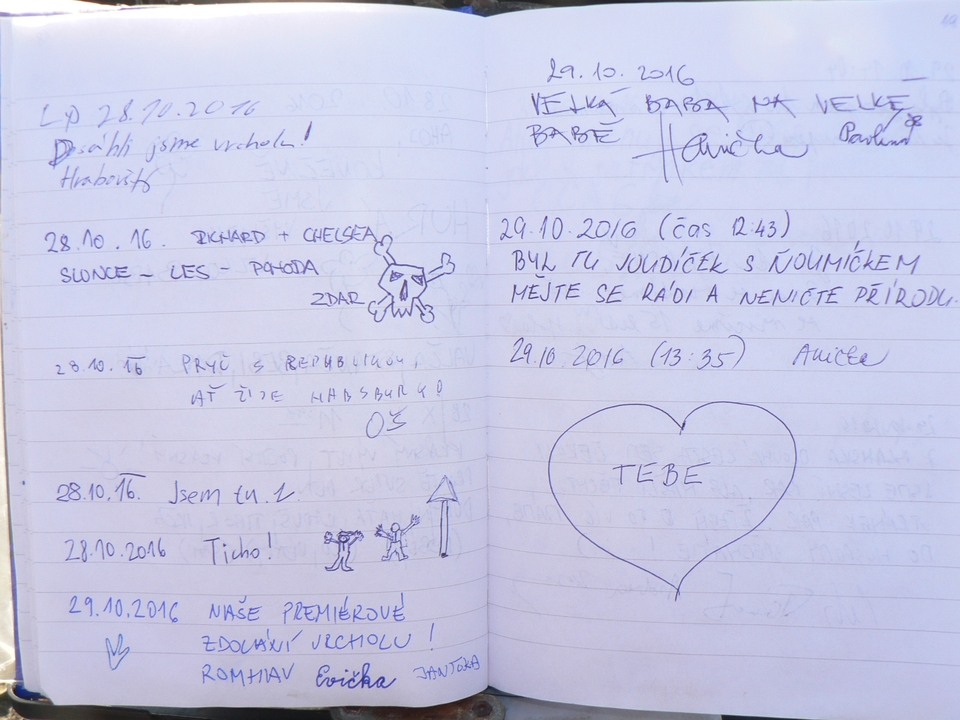 LP 28.10.2016
Dosáhli jsme vrcholu!
28.10.16. RICHARD + CHELSEA
SLUNCE - LES - POHODA
ZDAR
28.10.16 PRYČ S REPUBLIKOU,
AŤ ŽIJE HABSBURK!
OŠ
28.10.16. Jsem tu.
28.10.2016 Ticho!
29.10.2016 NAŠE PREMIÉROVÉ
ZDOLÁNÍ VRCHOLU!
Evička
29.10.2016
VELKÁ BABA NA VELKÉ
BABĚ Hanička
29.10.2016 (čas 12:43)
BYL TU JOUDÍČEK S ŇOUMÍČKEM
MĚJTE SE RÁDI A NENIČTE PŘÍRODU.
29.10.2016 (13:35)
TEBE